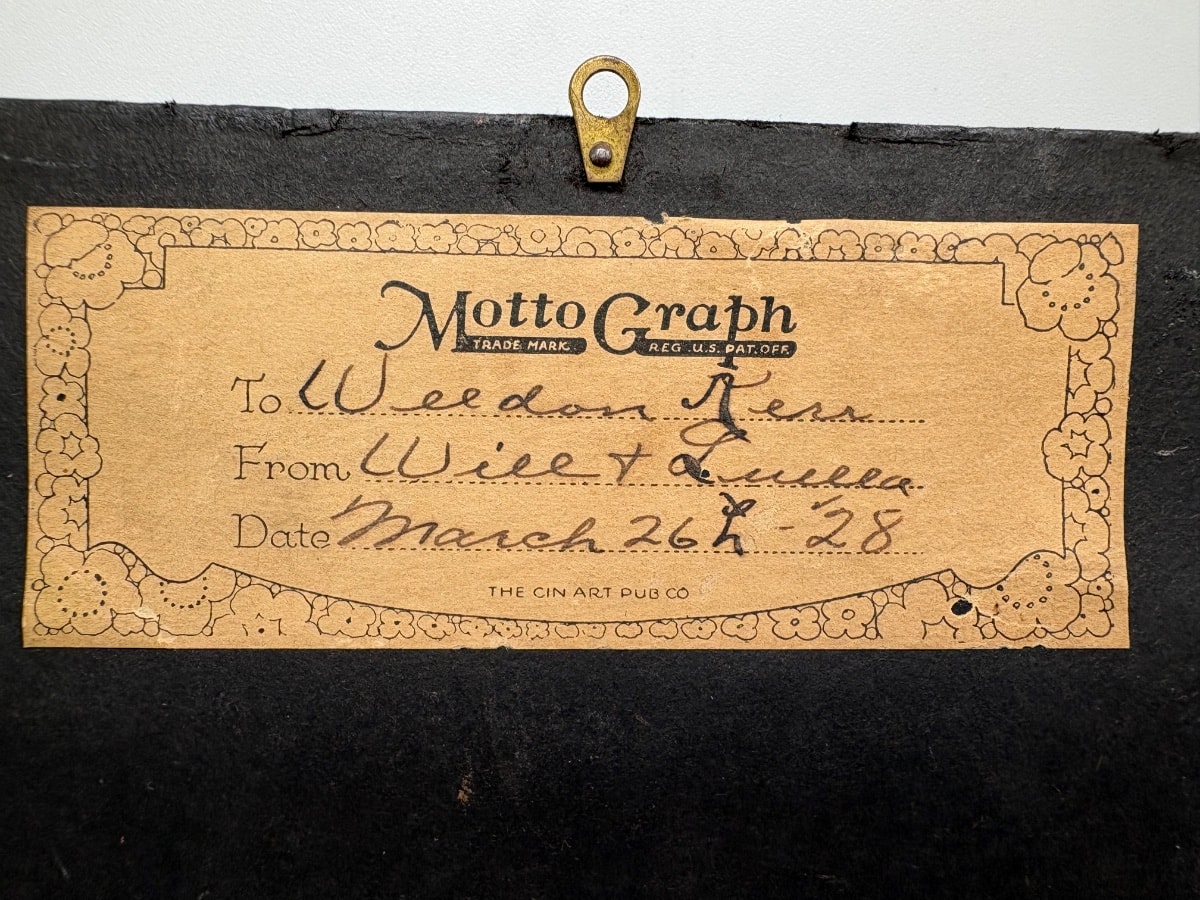 Motto Graph
TRADE MARK REG. U.S. PAT. OFF.
To Weldon Kerr
From Will + Luella
Date March 26th - '28
THE CIN ART PUB CO